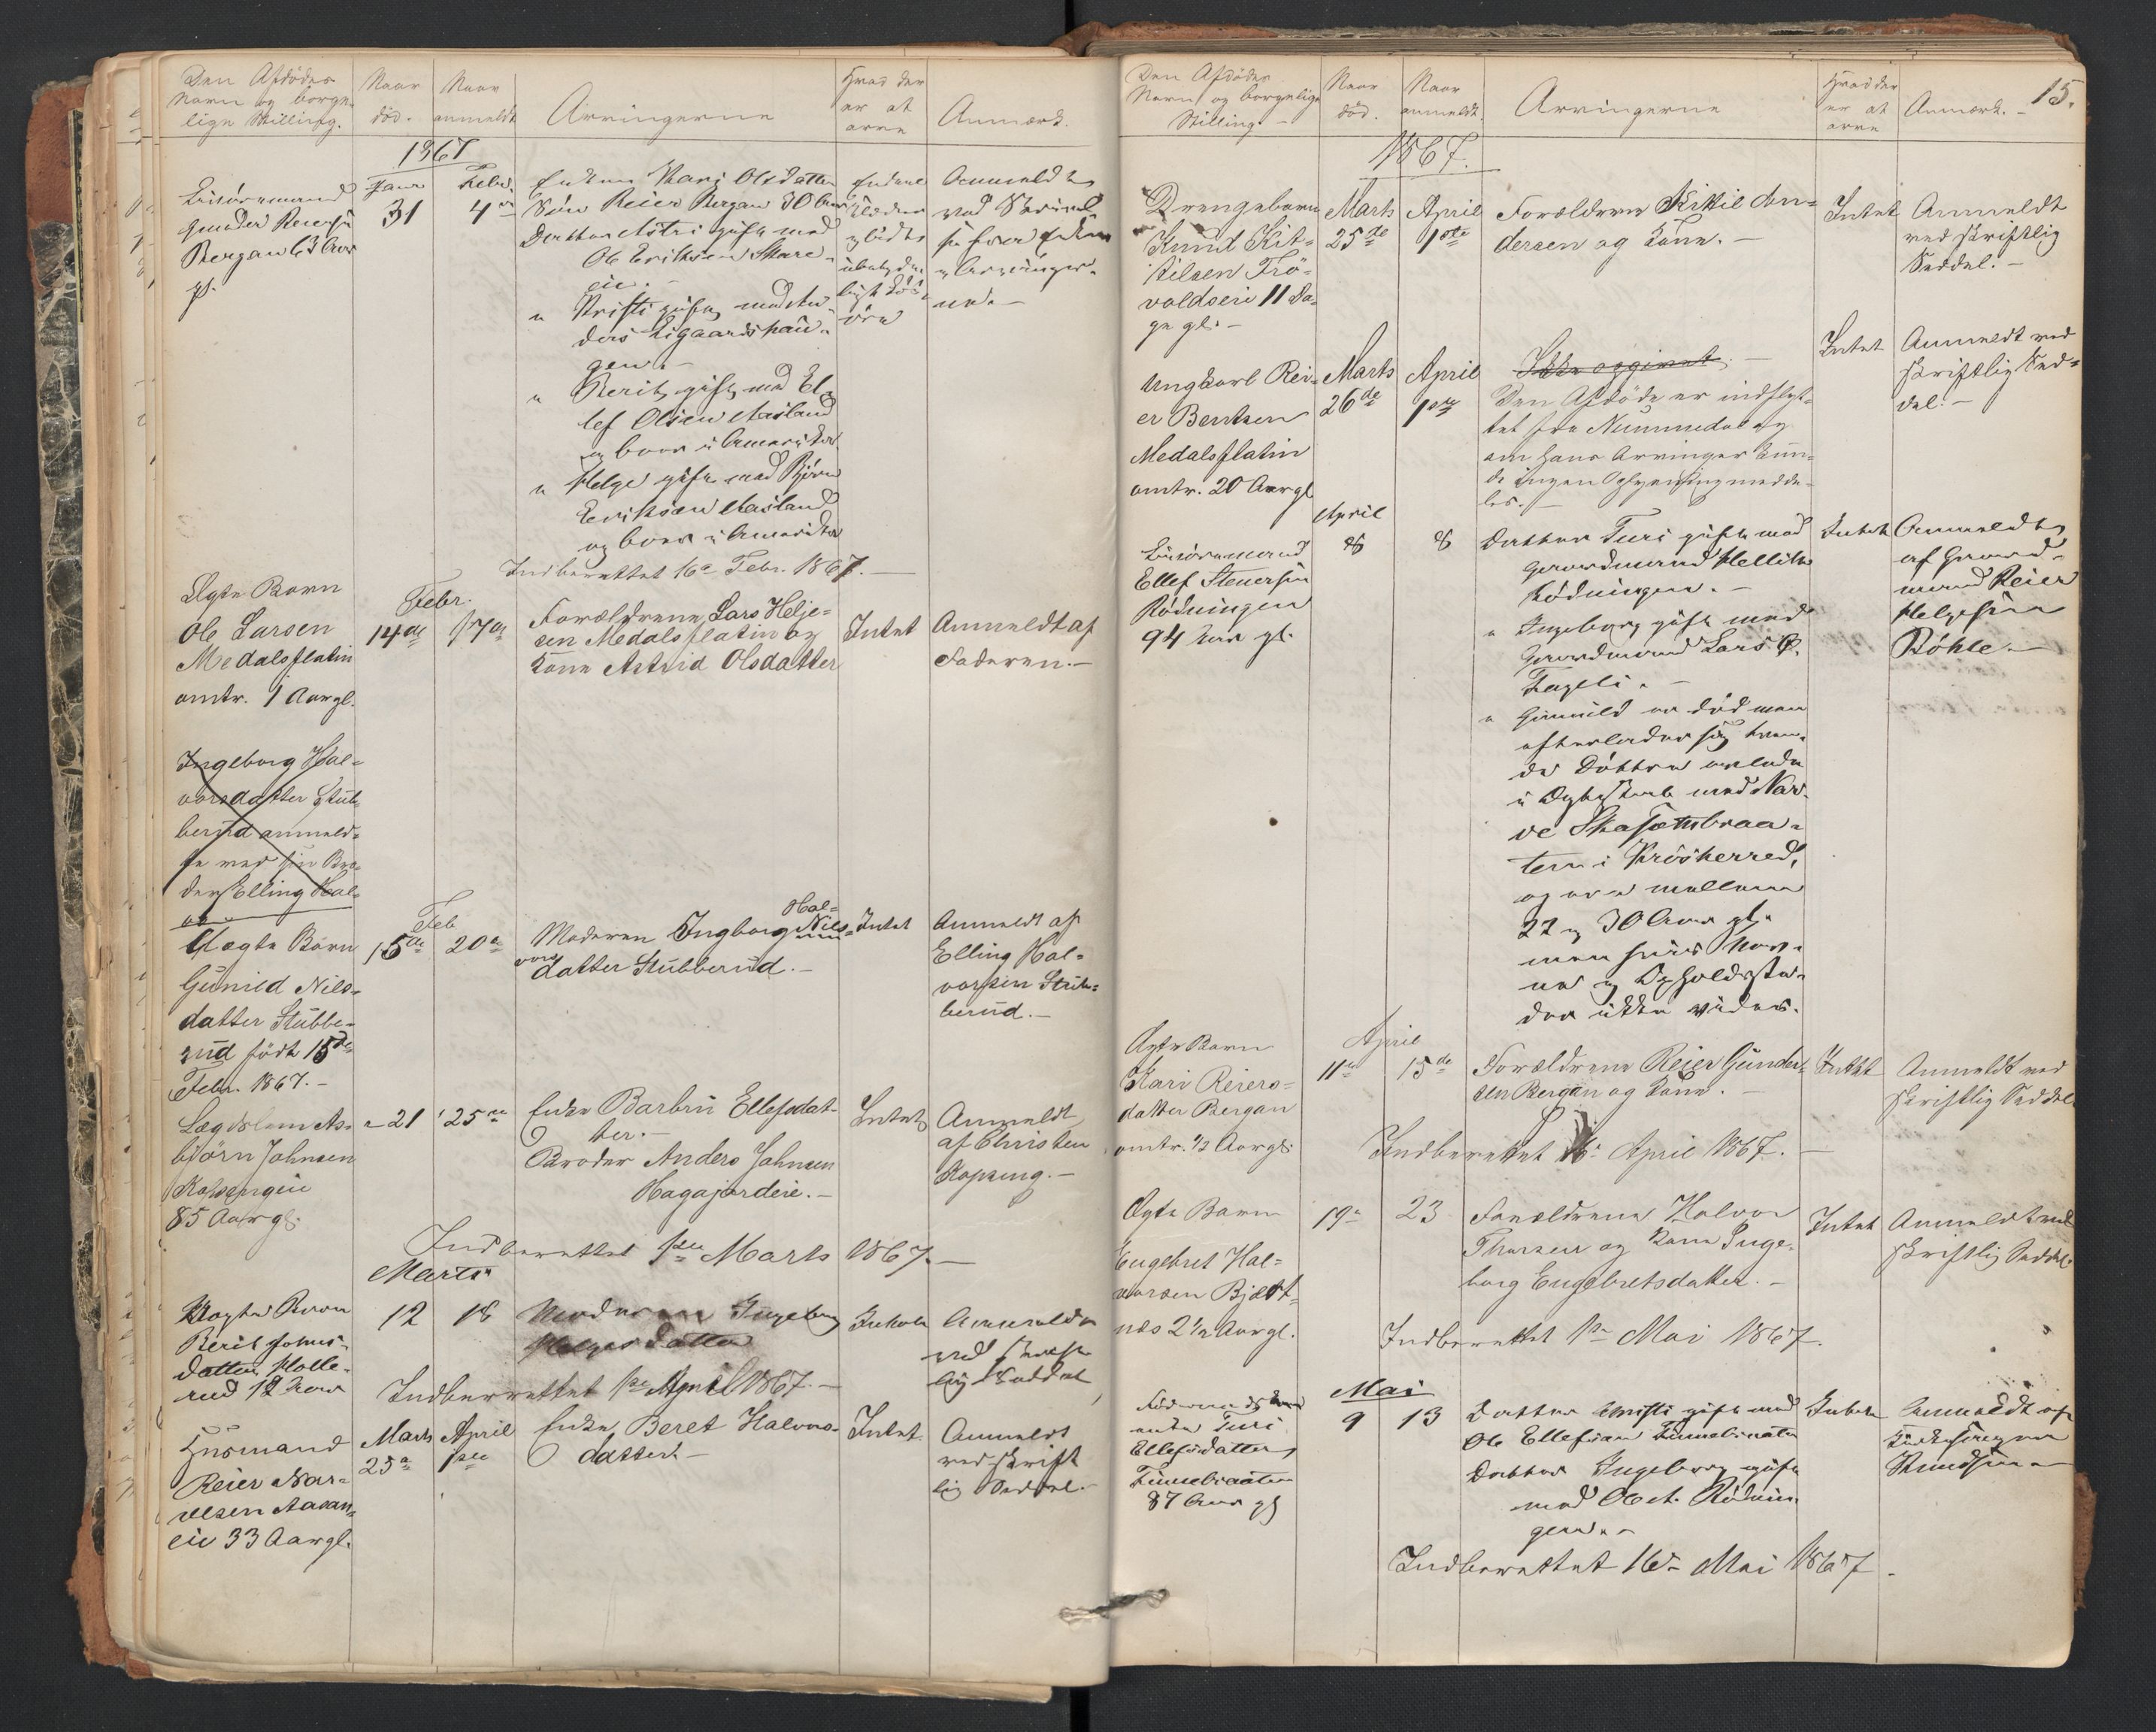 Den Afdödes
Navn og borger-
lige Stilling.
Naar
död.
Naar
anmeldt
Arvingerne
Hvad der
er at
arve
Anmærk.
1867
Janr
31
Febr.
4de
Gunder Reiersen
Bergan 63 Aar
gl.
Enken Kari Olsdatter
Sön Reier Bergan 30 Aar
Datter Astri gift med
Ole Eriksen Skare-
eie.-
" Kristi gift med An-
ders Ligaardshau-
gen.-
" Berit gift med El-
lef Olsen Aasland
og boer i Amerika
" Helge gift med Björn
Eriksen Aasland
og boer i Amerika
Anmeldt
Indberettet 16de Febr. 1867.-
Ægte Barn
Ole Larsen
Medalsflatin
omtr. 1 Aar gl.
Febr.
14de
17de
Forældrene Lars Helje-
sen Medalsflatin og
Kone Astrid Olsdatter
Intet
Anmeldt af
Faderen.-
Ingeborg Hal-
vorsdatter Stub-
berud anmeld-
te ved sin Bro-
der Elling Hal-
vo
Uægte Barn
Gunild Nils-
datter Stubbe-
rud födt 15de
Febr. 1867.-
Feb
15de
20de
Moderen Ingborg Nils- Hal-
vors
datter Stubberud.-
Intet
Anmeldt af
Elling Hal-
vorsen Stub-
berud.-
Lægdslem As-
björn Johnsen
Kopsengeie
85 Aar gl.
- 21
25de
Enke Barbru Ellefsdat-
ter.-
Broder Anders Johnsen
Hagajordeie.-
Intet
Anmeldt
af Christen
Kopseng.-
Indberettet 1ste Marts 1867.-
Marts
Uægte Barn
Berit Johns-
datter Kolle-
rud 12 Aar
12
18
Moderen Ingeborg
Helgesdatter
Intet
Anmeldt
ved skrift-
lig Seddel
Indberettet 1ste April 1867.-
Husmand
Reier Nar-
vesen Aasan-
eie 33 Aar gl.
Marts
25de
April
1ste
Enke Beret Halvors-
datter.-
Intet
Anmeldt
ved skrift
lig Seddel.-
Den Afdödes
Navn og borgerlige
Stilling.-
Naar
död.
Naar
anmeldt.
Arvingerne
Hvad der
er at
arve
Anmærk.-
15.
1867.
Drengebarn
Knud Kit-
tilsen Trö-
voldseie 11 Da-
ge gl.-
Marts
25de
April
1ste
Forældrene Kittil An-
dersen og Kone.-
Intet
Anmeldt
ved skriftlig
Seddel.-
Ungkarl Rei-
er Bentsen
Medalsflatin
omtr. 20 Aar gl
Marts
26de
April
1ste
Ikke opgivet.-
Den Afdöde er indflyt-
tet fra Nummedal og
om hans Arvinger kun-
de ingen Oplysning medde-
les.-
Intet
Anmeldt ved
skriftlig Sed-
del.-
Ellef Stenersen
Rödningen
94 Aar gl.
April
8
8
Datter Turi gift med
Gaardmand Hellik
Rödningen.-
" Ingeborg gift med
Gaardmand Lars
Fageli.-
" Gunnild er död men
efterlader sig tven-
de Döttre avlede
i Ægteskab med Nar-
ve Skasætbraa-
ten i Krösherred,
og ere mellem
22 og 30 Aar gl.
men hvis Nav-
ne og Opholdsste-
der ikke vides.
Intet
Anmeldt
af Gaard-
mand Reier
Helgesen
Böhle.-
Ægte Barn
Kari Reiers-
datter Bergan
omtr. 1/2 Aar gl.
April
11te
15de
Forældrene Reier Gunder-
sen Bergan og Kone.-
Intet
Anmeldt ved
skriftlig Seddel
Indberettet 16de April 1867.-
Ægte Barn
Engebret Hal-
vorsen Bjært-
nes 2 1/2 Aar gl.
19de
23
Forældrene Halvor
Thorsen og Kone Inge-
borg Engebretsdatter.-
Intet
Anmeldt ved
skriftlig Seddel
Indberettet 1ste Mai 1867.
Mai
enke Turi
Ellefsdatter
Tunnebraaten
87 Aar gl
9
13
Datter Kristi gift med
Ole Ellefsen Tunnebraaten
Datter Ingeborg gift
med Ole A. Rödnin-
gen.-
Intet
Anmeldt af
Knudsen
Indberettet 16de Mai 1867.